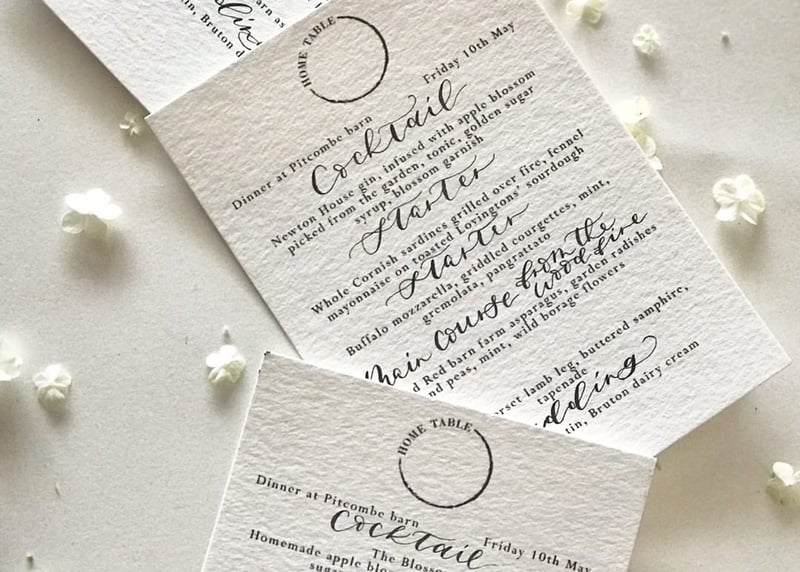 HOME TABLE
Dinner at Pitcombe barn
Friday 10th May
Cocktail
Newton House gin, infused with apple blossom
picked from the garden, tonic, golden sugar
syrup, blossom garnish
Starter
Whole Cornish sardines grilled over fire, fennel
mayonnaise on toasted Lovingtons' sourdough
Starter
Buffalo mozzarella, griddled courgettes, mint,
gremolata, pangrattato
Main course from the
wood fire
d Red barn farm asparagus, garden radishes
nd peas, mint, wild borage flowers
erset lamb leg, buttered samphire,
tapenade
dding
tin, Bruton dairy cream
HOME TABLE
Dinner at Pitcombe barn
Friday 10th May
Cocktail
The Blosso
Homemade apple blo
sugar